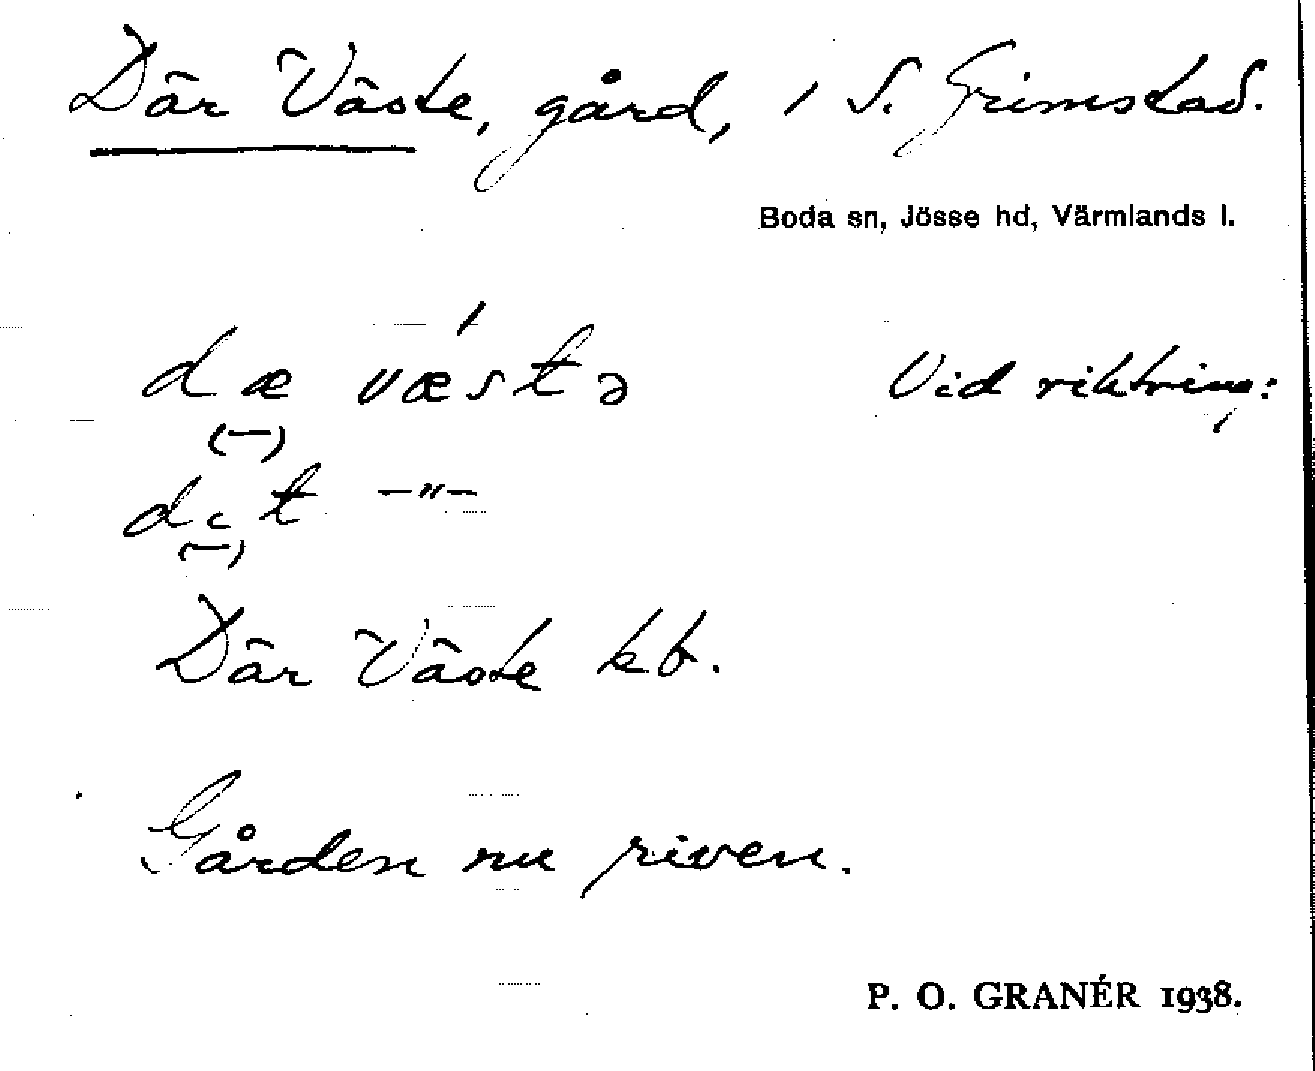 Där Väste, gård, i S. Grimstad.
Boda sn, Jösse hd, Värmlands l.
dæ vǽstə Vid riktning:
(—)
dit —"—
(—)
Där Väste kb.
Gården nu riven.
P. O. GRANÉR 1938.